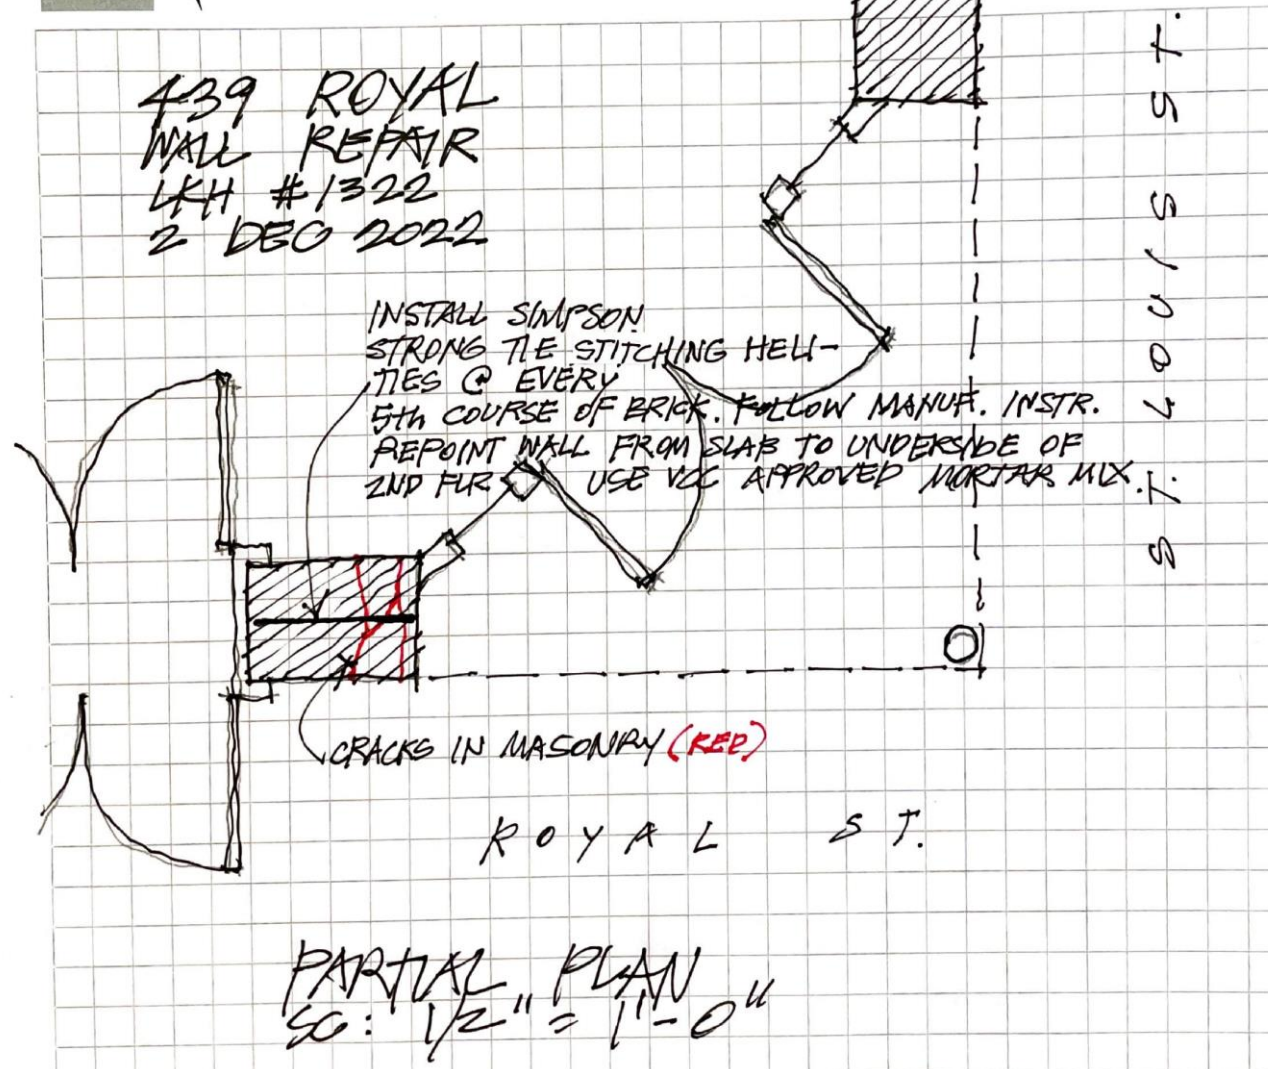 439 ROYAL
WALL REPAIR
LKH #1322
2 DEC 2022
INSTALL SIMPSON
STRONG TIE STITCHING HELI-
TIES @ EVERY
5th COURSE OF BRICK. FOLLOW MANUF. INSTR.
REPOINT WALL FROM SLAB TO UNDERSIDE OF
2ND FLR USE VCC APPROVED MORTAR MIX.
ST. LOUIS ST.
CRACKS IN MASONRY (RED)
ROYAL ST.
PARTIAL PLAN
SC: 1/2" = 1'-0"